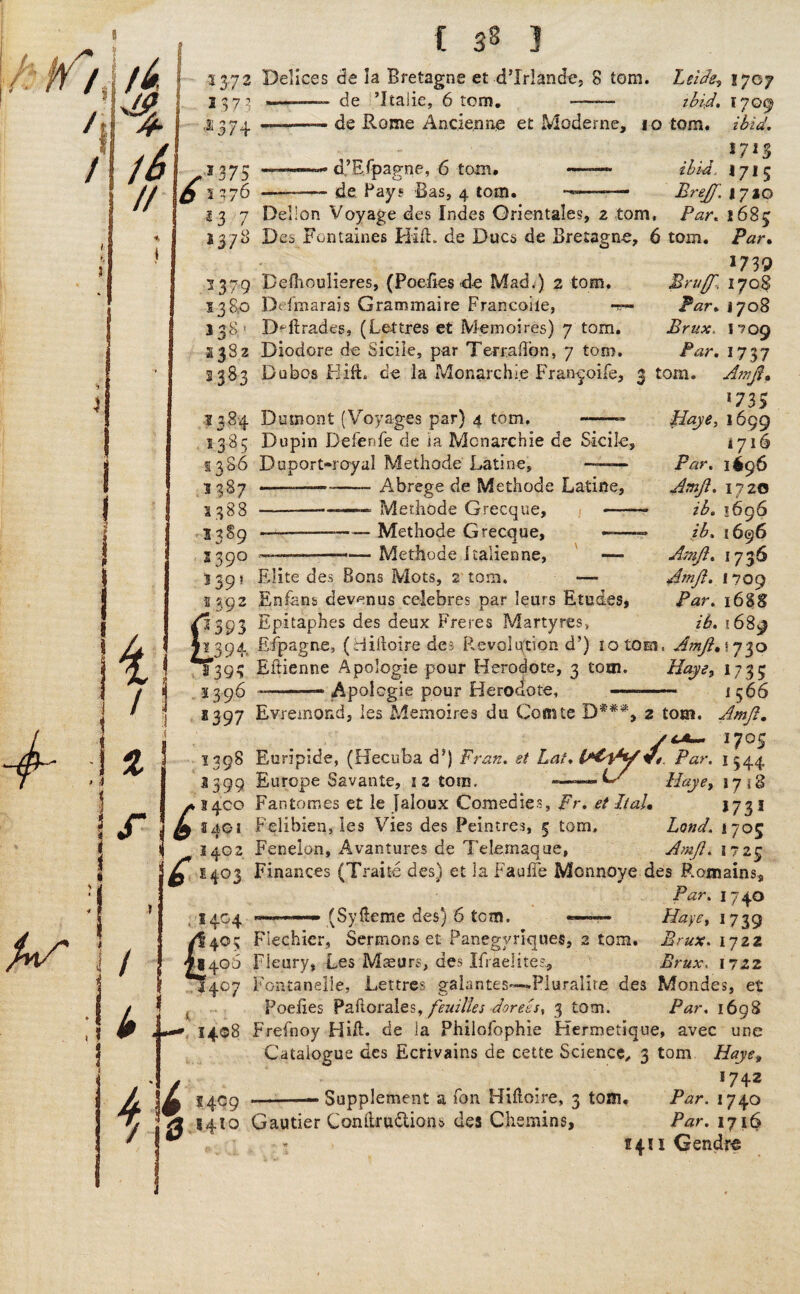 [ 38 ]
1372 Delices de la Bretagne et d'Irlande, 8 tom. Leide, 1707
1373 ——— de l'Italie, 6 tom. —— ibid. 1709
1374 ——— de Rome Ancienne et Moderne, 10 tom. ibid.
1713
1375 ——— d'Espagne, 6 tom. —— ibid. 1715
1376 ——— de Pays Bas, 4 tom. —— Breff. 1720
13 7 Dellon Voyage des Indes Orientales, 2 tom. Par. 1685
1378 Des Fontaines Hist. de Ducs de Bretagne, 6 tom. Par.
1739
1379 Deshoulieres, (Poesies de Mad.) 2 tom. Bruff. 1708
1380 Desmarais Grammaire Francoile, — Par. 1708
138 Destrades, (Lettres et Memoires) 7 tom. Brux. 1709
1382 Diodore de Sicile, par Terrasson, 7 tom. Par. 1737
1383 Dubos Hist. de la Monarchie Françoise, 3 tom. Amst.
1735
1384 Dumont (Voyages par) 4 tom. —— Haye, 1699
1385 Dupin Defense de la Monarchie de Sicile, 1716
1386 Duport-royal Methode Latine, —— Par. 1696
1387 ———— Abrege de Methode Latine, Amst. 1720
1388 ———— Methode Grecque, —— ib. 1696
1389 ———— Methode Grecque, —— ib. 1696
1390 ———— Methode Italienne, — Amst. 1736
1391 Elite des Bons Mots, 2 tom. — Amst. 1709
1392 Enfans devenus celebres par leurs Etudes, Par. 1688
1393 Epitaphes des deux Freres Martyres, ib. 1689
1394 Espagne, (Histoire des Revolution d') 10 tom. Amst. 1730
1395 Estienne Apologie pour Herodote, 3 tom. Haye, 1735
1396 ——— Apologie pour Herodote, —— 1566
1397 Evremond, les Memoires du Comte D***, 2 tom. Amst.
1705
1398 Euripide, (Hecuba d') Fran. et Lat. Par. 1544
1399 Europe Savante, 12 tom. —— Haye, 1718
1400 Fantomes et le Jaloux Comedies, Fr. et Ital. 1731
1401 Felibien, les Vies des Peintres, 5 tom. Lond. 1705
1402 Fenelon, Avantures de Telemaque, Amst. 1725
1403 Finances (Traité des) et la Fausse Monnoye des Romains,
Par. 1740
1404 ——— (Systeme des) 6 tom. —— Haye, 1739
1405 Flechier, Sermons et Panegyriques, 2 tom. Brux. 1722
1406 Fleury, Les Mæurs, des Israelites, Brux. 1722
1407 Fontanelle, Lettres galantes—Pluralite des Mondes, et
Poesies Pastorales, feuilles doreés, 3 tom. Par. 1698
1408 Fresnoy Hist. de la Philosophie Hermetique, avec une
Catalogue des Ecrivains de cette Science, 3 tom Haye,
1742
1409 ——— Supplement a son Histoire, 3 tom. Par. 1740
1410 Gautier Constructions des Chemins, Par. 1716
1411 Gendre